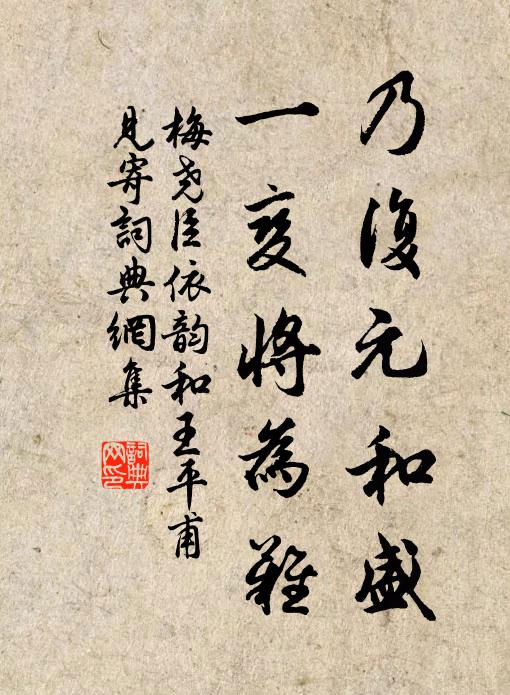 乃復元和盛
一變將為難
梅堯臣依韵和王平甫
見寄詞典網集
詞典網印